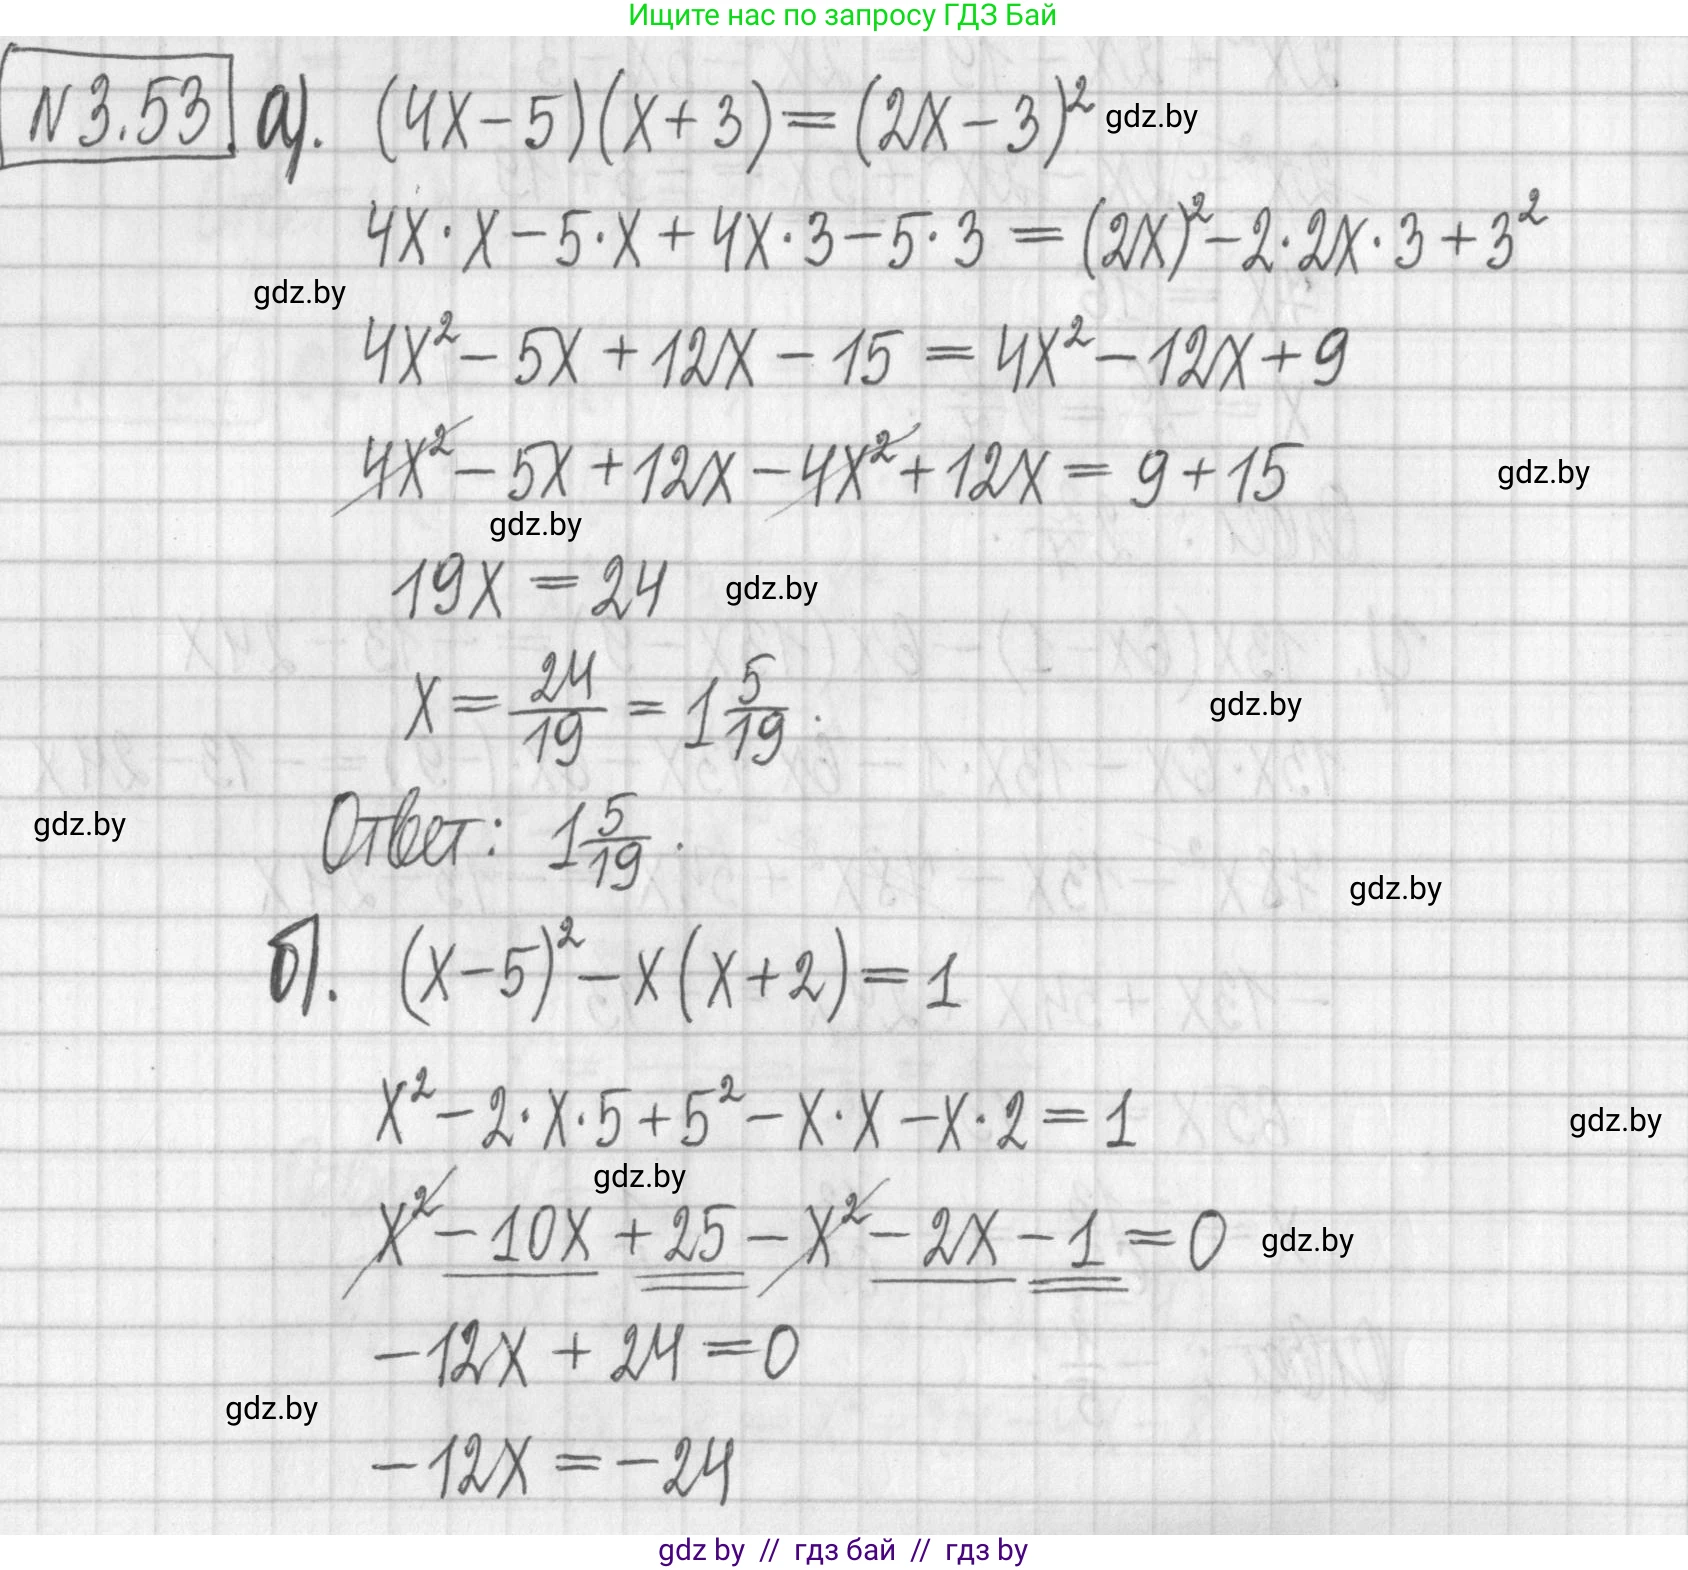 Ищите нас по запросу ГДЗ Бай
N 3.53. а). (4x-5)(x+3)=(2x-3)² gdz.by
4x·x-5·x+4x·3-5·3=(2x)²-2·2x·3+3²
gdz.by
4x²-5x+12x-15=4x²-12x+9
4x²-5x+12x-4x²+12x=9+15 gdz.by
gdz.by
19x=24 gdz.by
x=24/19=1 5/19. gdz.by
gdz.by Ответ: 1 5/19.
gdz.by
б). (x-5)²-x(x+2)=1
x²-2·x·5+5²-x·x-x·2=1 gdz.by
gdz.by
x²-10x+25-x²-2x-1=0 gdz.by
-12x+24=0
gdz.by
-12x=-24
gdz by // гдз бай // гдз by